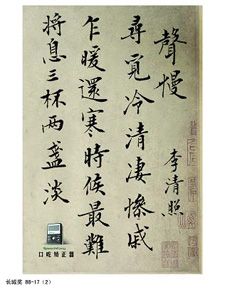 聲慢
李清照
尋覓冷清淒慘戚
乍暖還寒時候最難
將息三杯兩盞淡
口吃矯正器
长城奖 88-17（2）